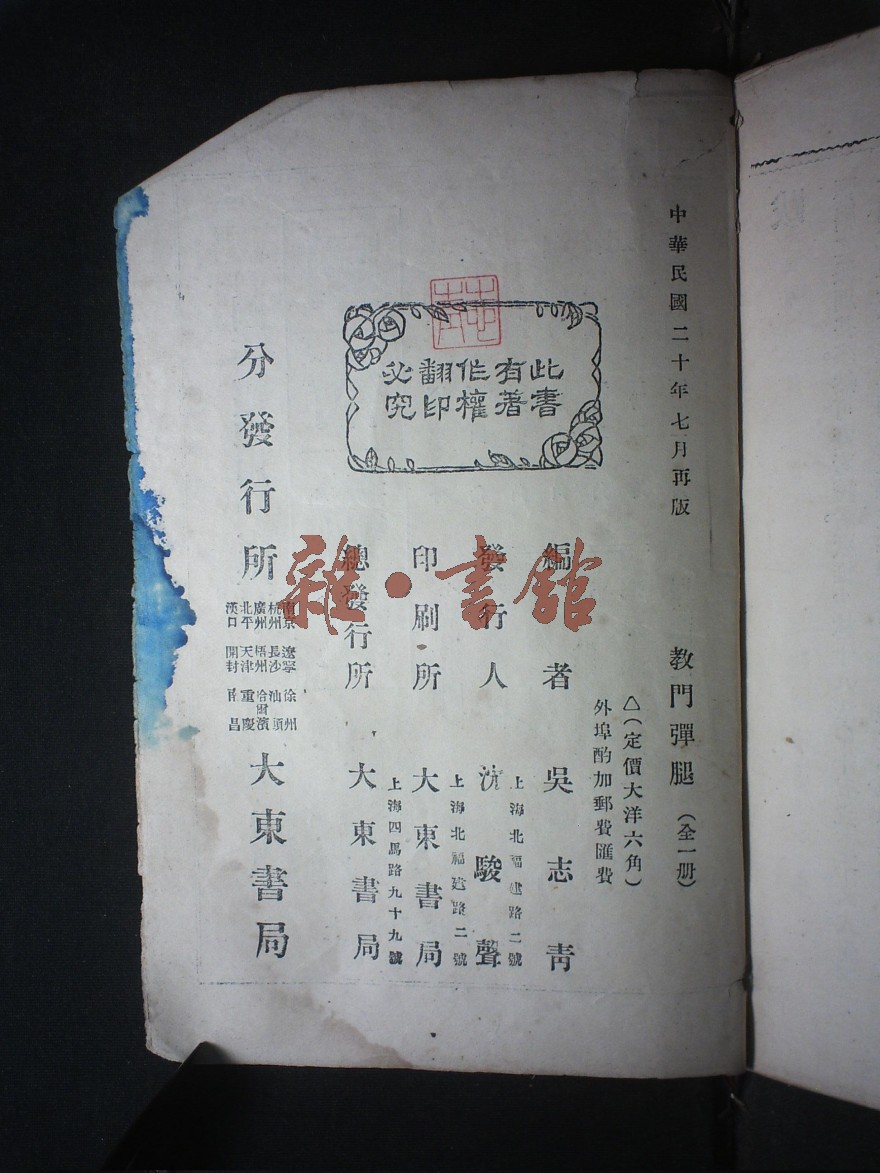 中華民國二十年七月再版
教門彈腿(全一册)
△(定價大洋六角)
外埠酌加郵費匯費
此書
有著
作權
翻印
必究
編者 吳志青
發行人 沈駿聲
上海北福建路二號
印刷所 大東書局
上海北福建路二號
總發行所 大東書局
上海四馬路九十九號
分發行所 大東書局
南京 遼寧 徐州
杭州 長沙 汕頭
廣州 梧州 哈爾濱
北平 天津 重慶
漢口 開封 昌
雜·書館